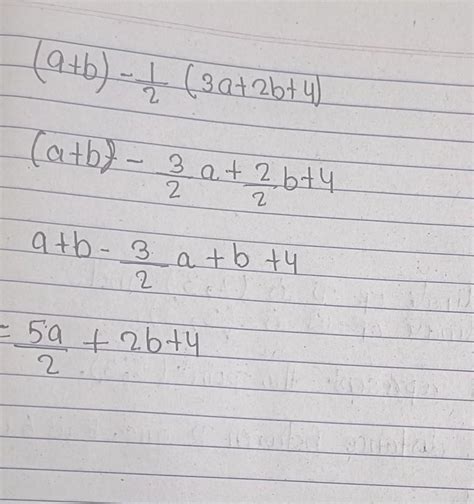 (a+b) - 1/2 (3a+2b+4)
(a+b) - 3/2 a + 2/2 b+4
a+b - 3/2 a + b + 4
= 5a/2 + 2b+4